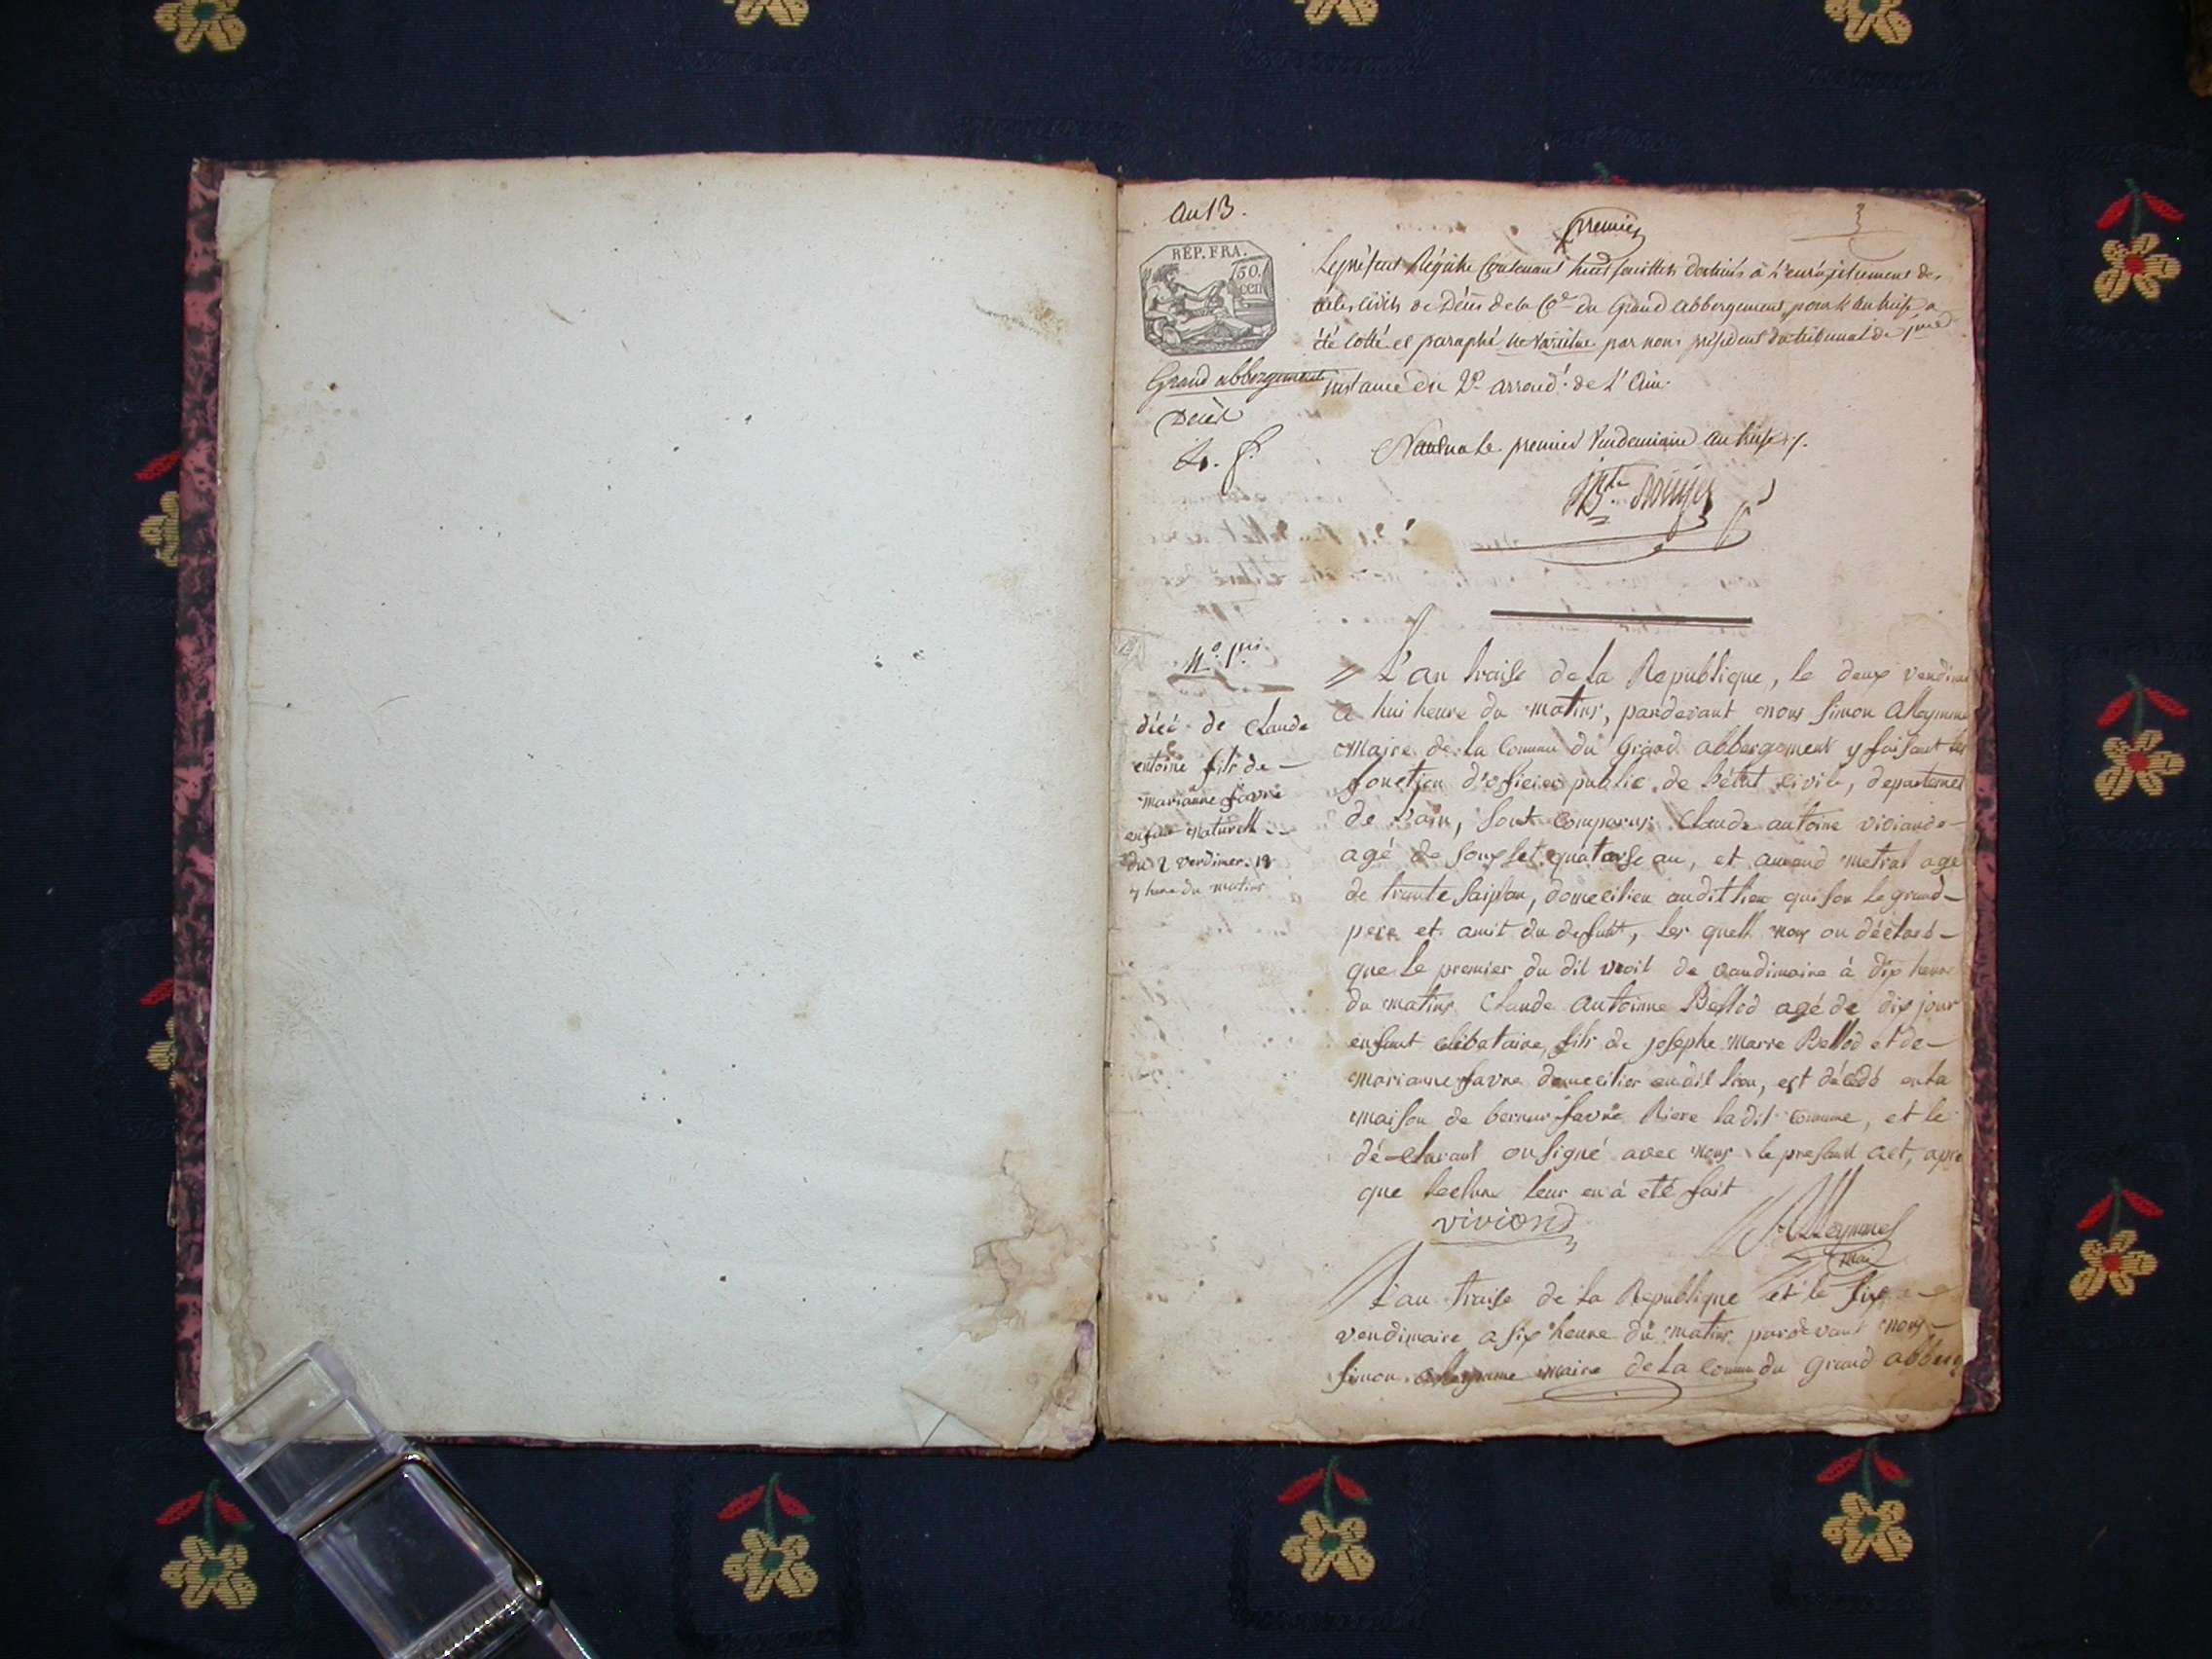 an 13.
premier
REP. FRA.
50.
cen
Le présent Régitre Contenant huit feuillets destinés à L'enrégistrement des
actes civils de Décès de la Cne du Grand abbergement pour L'an treize, a
été cotté et paraphé ne varietur par nous président du tribunal de 1ere
instance du 2e arrond.t de L'Ain.
Grand abbergement
Décès
Nantua Le premier Vendemiaire an treize
N.o 1.er
décé de Claude
entoine fils de
marianne favre
enfant naturell
du 2 vendimer. 13
7 heure du matins
L'an traise de La Republique, le deux vendimi
a hui heure du matins, pardevant nous Simon Alleymme
Maire de la Commu du Grand abbergement y faisant les
fonction d'oficier public de l'état civile, departemet
de L'ain, sont comparus Claude antoine viviand
agé de souxset quatorse an, et amand metral age
de trante saiptan, domecilien audit lieu qui son le grand
pere et amit du defunt, les quell nous on déclaré
que le premier du dit moit de vandimaire à dix heure
du matins Claude Antoinne Bellod agé de dix jour
enfant célibataire, fils de josephe Marre Bellod et de
marianne favre domecilier audit lieu, est décédé en la
maison de bernar favre Riere ladit commune, et le
déclarant on signé avec nous le present act, apre
que lecture leur en à eté fait
viviand
Alleymmel
mai
L'an traise de La Republique et le six
vendimaire a six heure du matins pardevant nous
Simon Alleymme maire de La Commu du Grand abberg